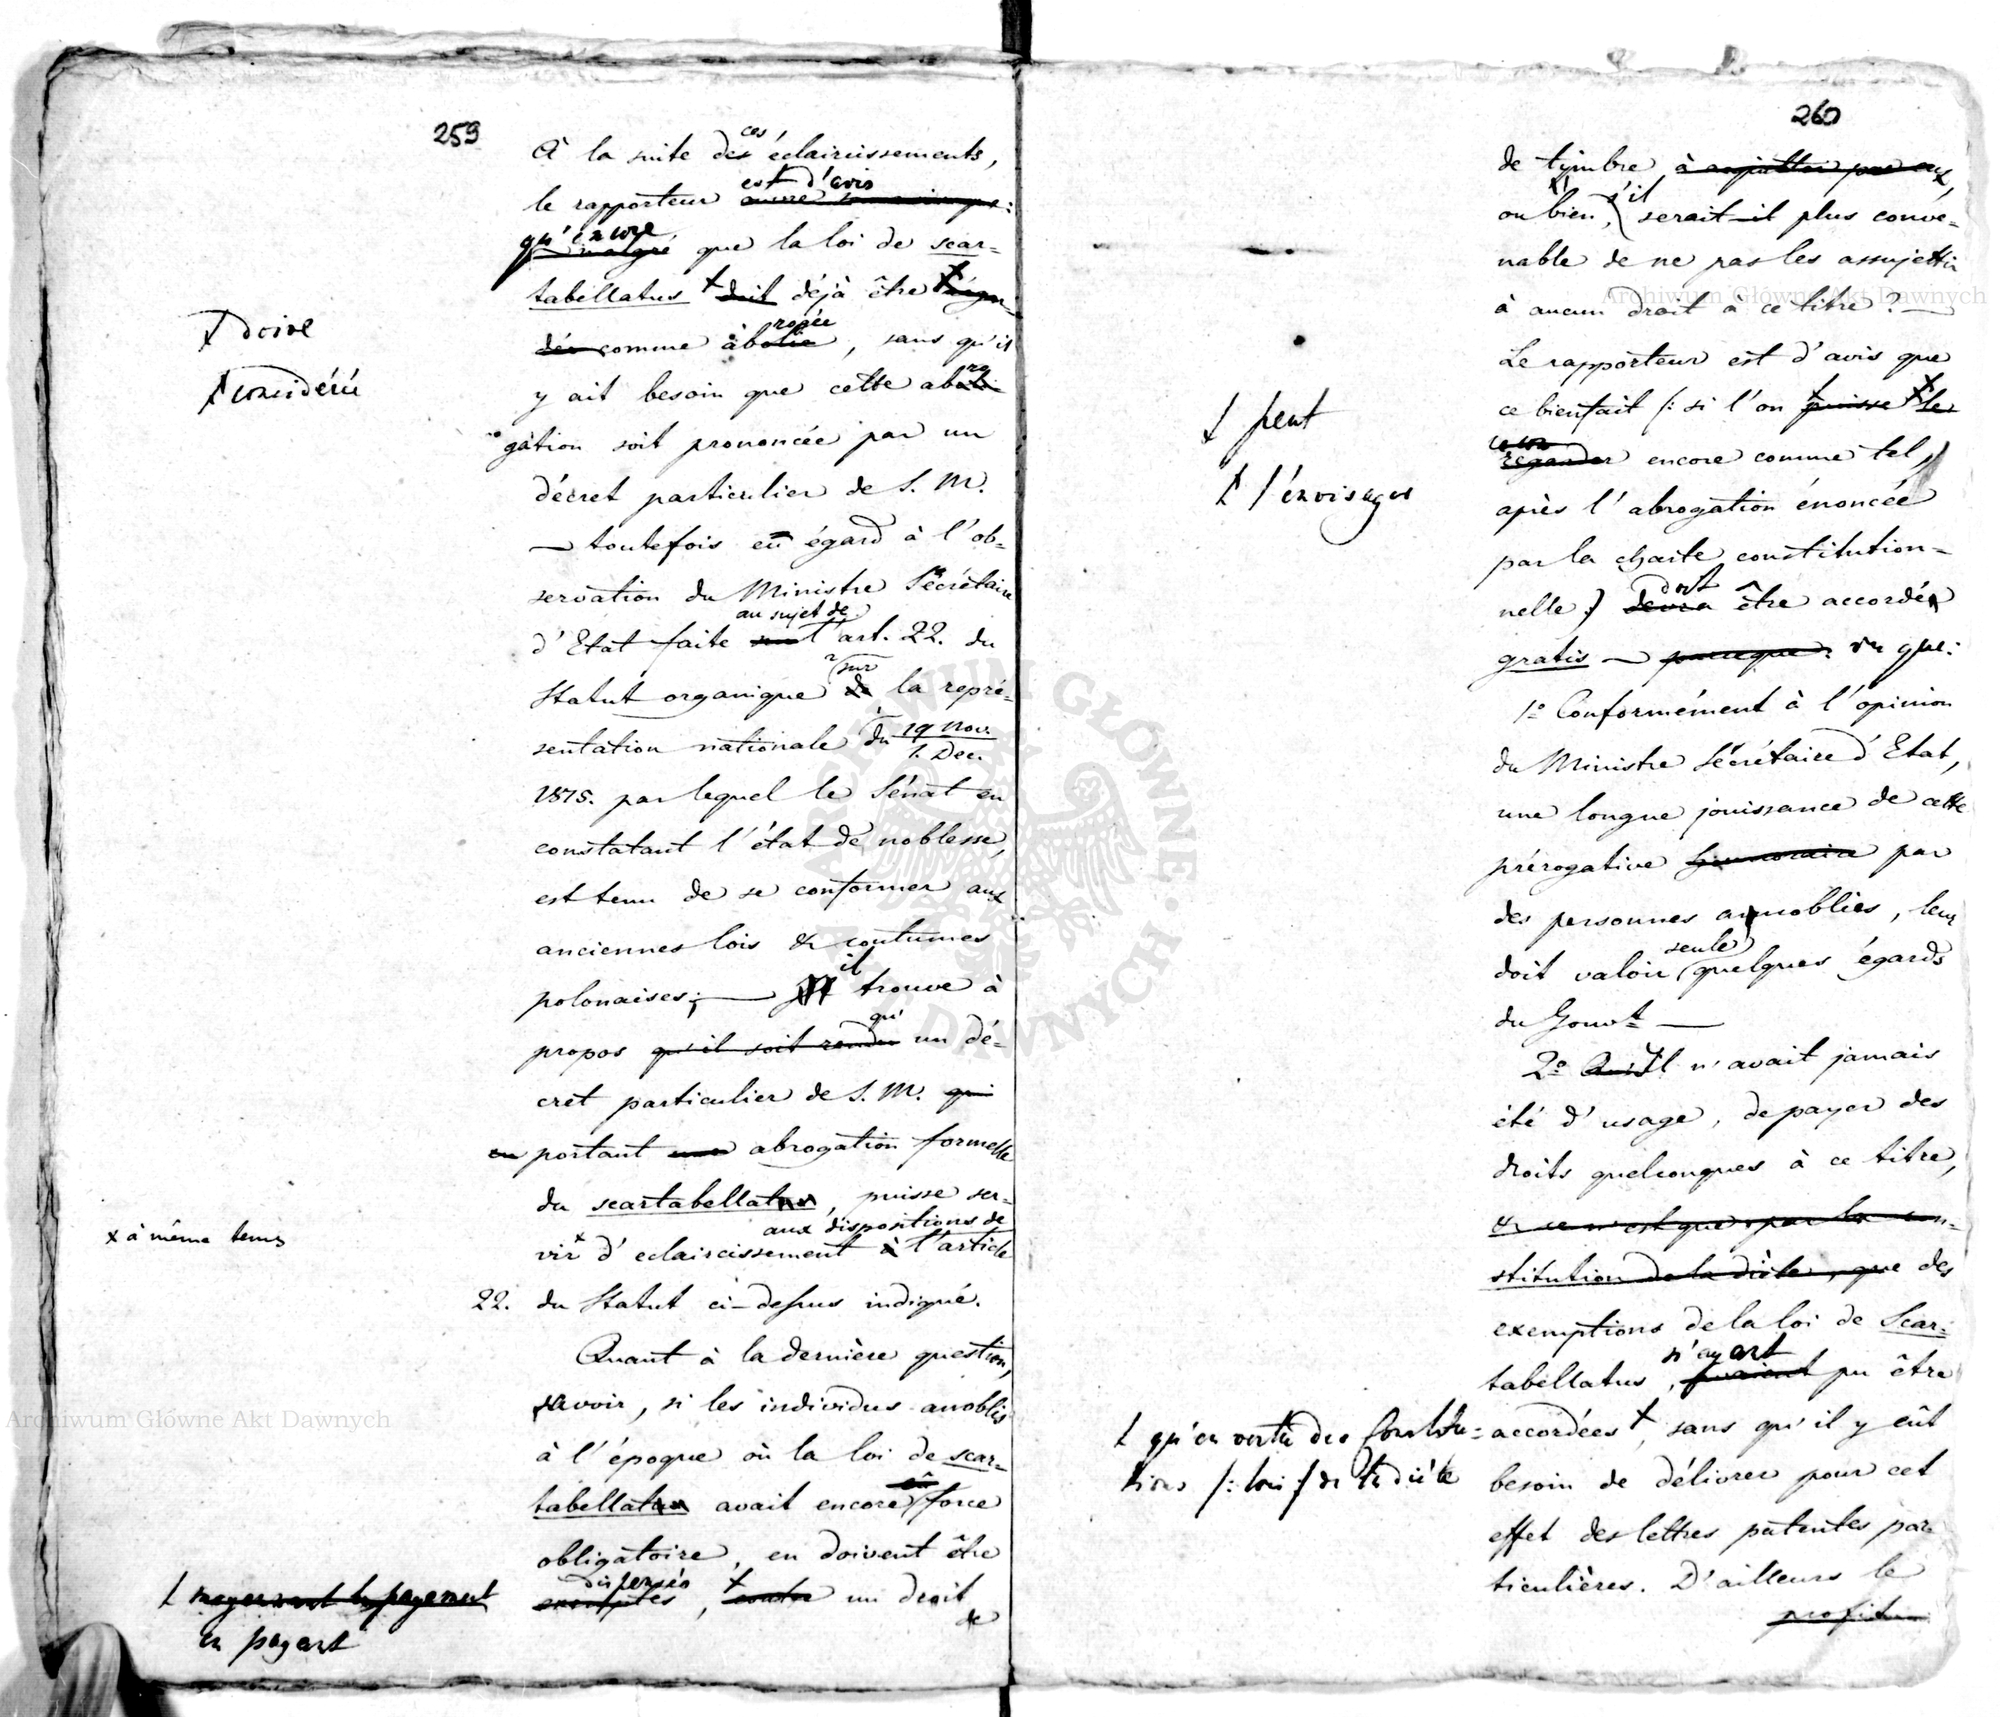 259
À la suite des ces éclaircissements,
le rapporteur est d'avis
qu'encore malgré que la loi de scar-
tabellatus ☨ doit déjà être ☨ régar-
dée comme abolie rogée, sans qu'il
☨ doive
☨ considérée
y ait besoin que cette abro
gation soit prononcée par un
décret particulier de S. M.
— toutefois eû égard à l'ob-
servation du Ministre Sécrétaire
d'Etat faite sur au sujet de l'art. 22. du
Statut organique de sur la repré-
sentation nationale du 19 Nov. / 1. Dec.
1815. par lequel le Sénat en
constatant l'état de noblesse,
est tenu de se conformer aux
anciennes lois & coutumes
polonaises; — il trouve à
propos qu'il soit rendu qu' un dé-
cret particulier de S. M. qui
en portant une abrogation formelle
du scartabellatus, puisse ser-
x à même tems
vir x d'eclaircissement à aux dispositions de l'article
22. du Statut ci-dessus indiqué.
Quant à la dernière question,
savoir, si les individus anoblis
à l'époque où la loi de scar-
tabellatus avait encore eû force
obligatoire, en doivent être
exemptés dispensés, ☨ contre un droit
de
☨ moyennant le payement
en payant
260
de tymbre à assujettir par eux,
ou bien, s'il serait-il plus conve-
nable de ne pas les assujettir
à aucun droit à ce titre? —
Le rapporteur est d'avis que
ce bienfait /: si l'on ☨ puisse ☨ le
☨ peut
regarder encore comme tel,
☨ l'envisager
après l'abrogation énoncée
par la charte constitution-
nelle :/ devra doit être accordé
gratis — parceque: vu que:
1º Conformément à l'opinion
du Ministre Sécrétaire d'Etat,
une longue jouissance de cette
prérogative par
des personnes annoblies, leur
doit valoir seule quelques égards
du Gouvt —
2º Qu'il n'avait jamais
été d'usage, de payer des
droits quelconques à ce titre,
& ce n'est que par la con-
stitution de la diète, que des
exemptions de la loi de Scar-
tabellatus, n'ayant pu être
accordées ☨, sans qu'il y eût
☨ qu'en vertu des Constitu-
tions /: loi :/ de la diète
besoin de délivrer pour cet
effet des lettres patentes par
ticulières. D'ailleurs le
profit
Archiwum Główne Akt Dawnych
Archiwum Główne Akt Dawnych
ARCHIWUM GŁÓWNE AKT DAWNYCH